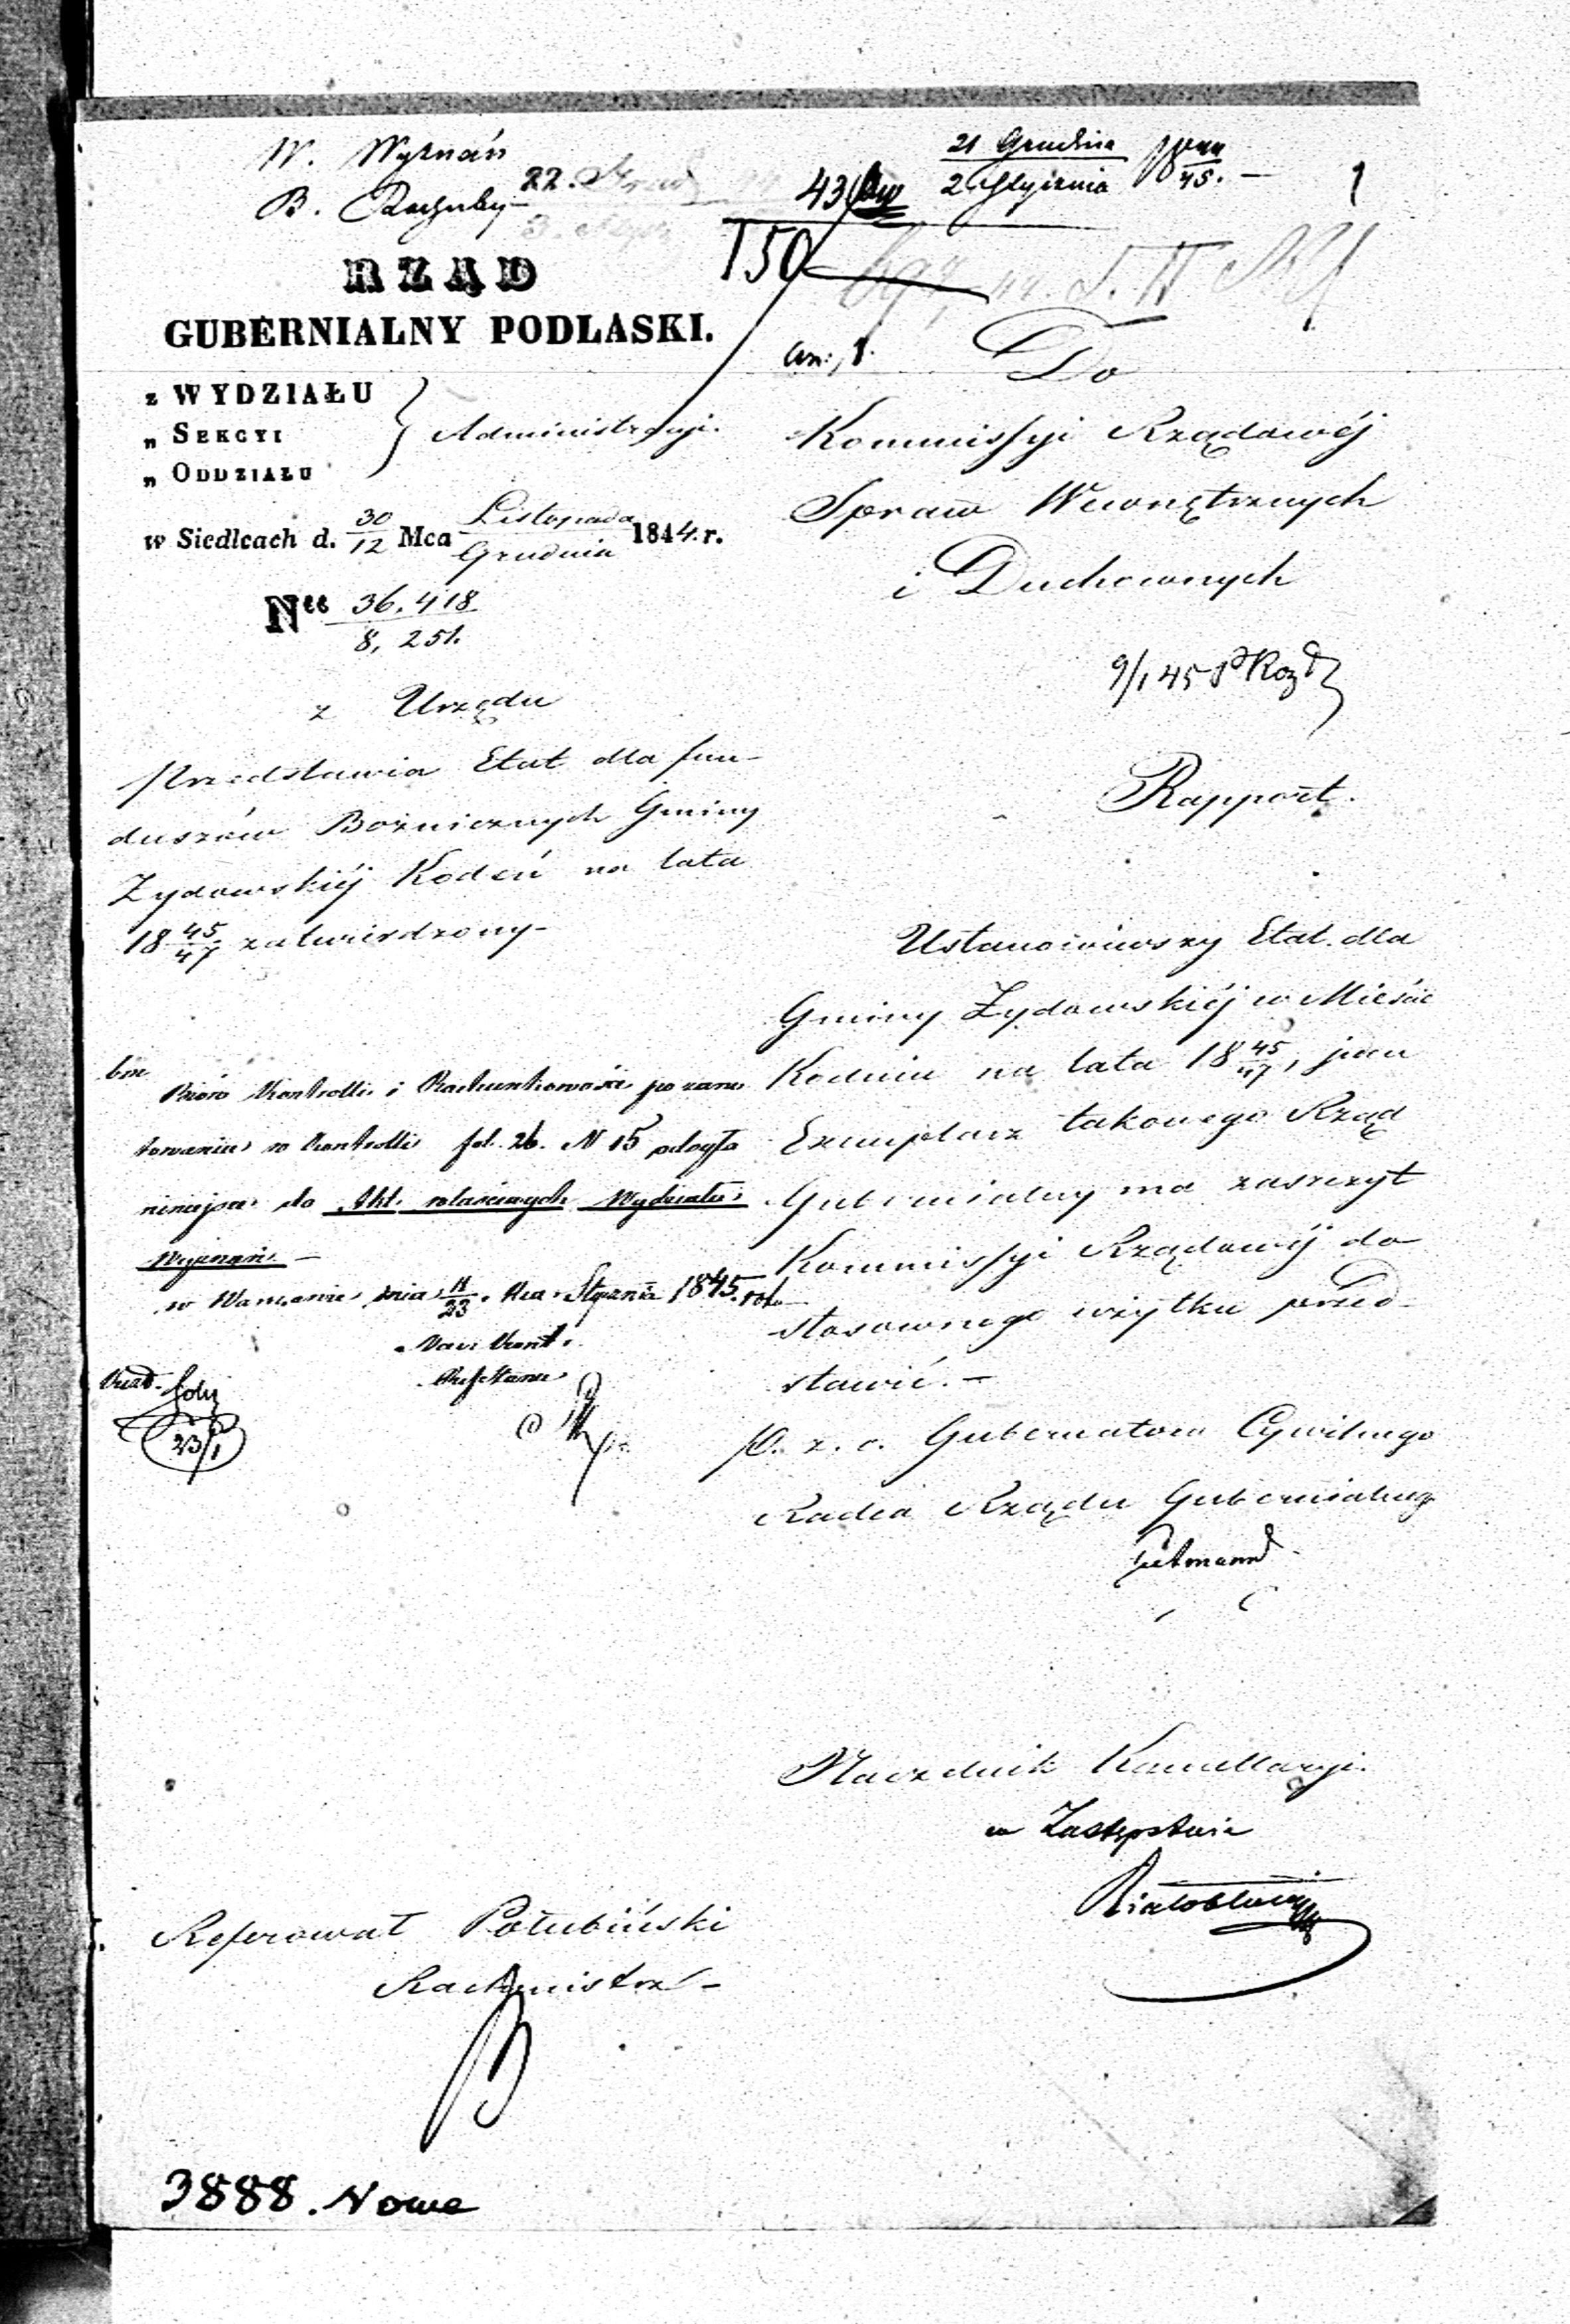 W. Wyznań
B. Rachuby
22.
43
21 Grudnia
2 Stycznia
45. —
1
150
RZĄD
GUBERNIALNY PODLASKI.
z WYDZIAŁU
„ SEKCYI
„ ODDZIAŁU
Administracyi.
w Siedlcach d. 30/12 Mca Listopada/Grudnia 1844. r.
Nee 36,418
8,251.
z Urzędu
Przedstawia Etat dla fun-
duszów Bożnicznych Gminy
Żydowskiéj Kodeń na lata
18 45/47 zatwierdzony-
an: 1.
Do
Kommissyi Rządowéj
Spraw Wewnętrznych
i Duchownych
9/1 45
Rapport.
Ustanowiwszy Etat dla
Gminy Żydowskiéj w Mieście
Kodniu na lata 18 45/47, jeden
Exemplarz takowego Rząd
Gubernialny ma zaszczyt
Kommissyi Rządowéj do
stosownego użytku przed-
stawić. —
p. z. o. Gubernatora Cywilnego
Radca Rządu Gubernialnego
Bióro Kontrolli i Rachunkowości po zano
towaniu w Kontrolli fol. 26. N 15 odsyła
niniejsze do Akt. właściwych Wydziału
Wyznań. —
w Warszawie dnia 11/23. Mca Stycznia 1845. roku
23/1
Naczelnik Kancellaryi.
w Zastępstwie
Referował Połubiński
Rachmistrz —
3888. Nowe